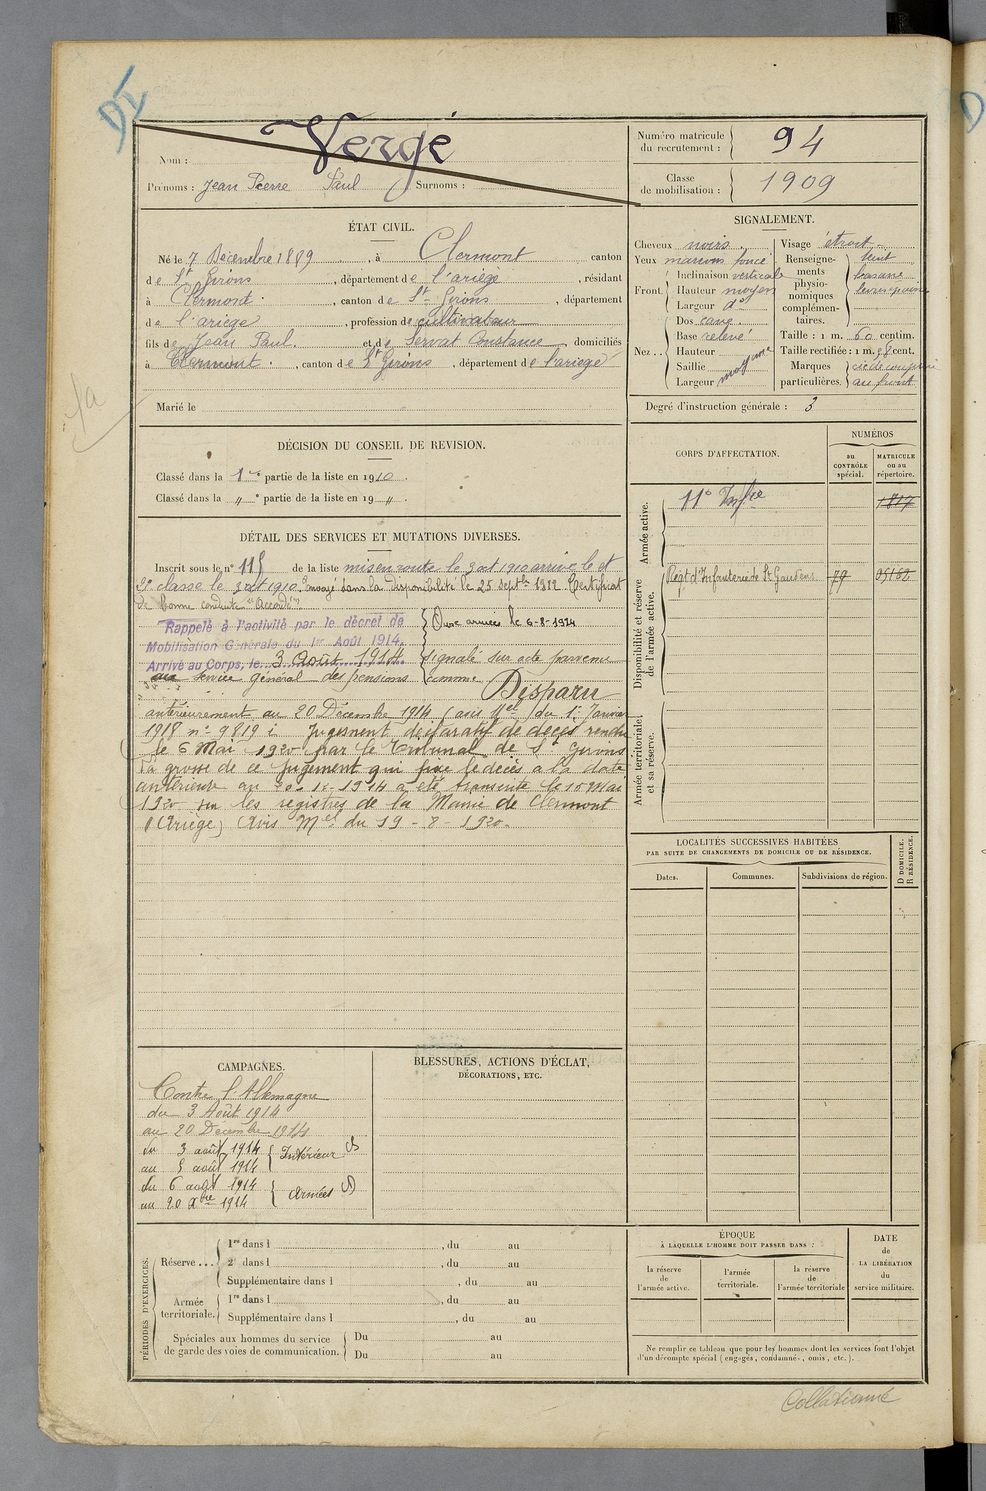 DI
Nom : Vergé
Prénoms : Jean Pierre Paul Surnoms :
Numéro matricule du recrutement : 94
Classe de mobilisation : 1909
ÉTAT CIVIL.
Né le 7 Décembre 1889, à Clermont canton
de St Girons, département de l'ariège, résidant
à Clermont, canton de St Girons, département
de l'ariège, profession de cultivateur
fils de Jean Paul et de Servat Constance, domiciliés
à Clermont, canton de St Girons, département de l'ariège
Marié le
SIGNALEMENT.
Cheveux noirs
Yeux marrons foncé
Front. Inclinaison verticale
Hauteur moyen
Largeur d°
Nez... Dos cave
Base relevé
Hauteur
Saillie moyenne
Largeur
Visage étroit
Renseignements physionomiques complémentaires.
Taille : 1 m. 60 centim.
Taille rectifiée : 1 m. cent.
Marques particulières. au front
Degré d'instruction générale : 3
DÉCISION DU CONSEIL DE REVISION.
Classé dans la 1re partie de la liste en 1910.
Classé dans la " e partie de la liste en 19 ".
DÉTAIL DES SERVICES ET MUTATIONS DIVERSES.
Inscrit sous le n° 115 de la liste mis en route le 3 oct 1910 arrivé le et
2e classe le 3 oct 1910. Envoyé dans la disponibilité le 25 septbre 1912 Certificat
de bonne conduite "Accordé"
Rappelé à l'activité par le décret de
Mobilisation Générale du 1er Août 1914.
Arrivé au Corps, le 3 Août 1914.
Aux armées le 6-8-1914
Signalé sur acte parvenu
au service général des pensions comme Disparu
antérieurement au 20 Décembre 1914 (avis Mel du 1er Janvier
1918 n° 9819 Jugement déclaratif de décès rendu
le 6 Mai 1920 par le Tribunal de St Girons
la grosse de ce jugement qui fixe le décès à la date
antérieure au 20-12-1914 a été transcrite le 10 Mai
1920 sur les registres de la Mairie de Clermont
(Ariège) Avis Mel du 19-8-1920.
CORPS D'AFFECTATION.
NUMÉROS
au CONTRÔLE spécial.
MATRICULE ou au répertoire.
Armée active.
11e Infrie 1817
Disponibilité et réserve de l'armée active.
Régt d'Infanterie de St Gaudens 77
Armée territoriale et sa réserve.
LOCALITÉS SUCCESSIVES HABITÉES
PAR SUITE DE CHANGEMENTS DE DOMICILE OU DE RÉSIDENCE.
Dates. Communes. Subdivisions de région. D DOMICILE. R RÉSIDENCE.
CAMPAGNES.
Contre l'Allemagne
du 3 Août 1914
au 20 Décembre 1914
du 3 août 1914
au 5 août 1914 Intérieur
du 6 août 1914
au 20 Xbre 1914 Armées
BLESSURES, ACTIONS D'ÉCLAT,
DÉCORATIONS, ETC.
PÉRIODES D'EXERCICES.
Réserve... 1re dans l , du au
2e dans l , du au
Supplémentaire dans l , du au
Armée territoriale. 1re dans l , du au
Supplémentaire dans l , du au
Spéciales aux hommes du service de garde des voies de communication. Du au
Du au
ÉPOQUE
À LAQUELLE L'HOMME DOIT PASSER DANS :
la réserve de l'armée active.
l'armée territoriale.
la réserve de l'armée territoriale
DATE de LA LIBÉRATION du service militaire.
Ne remplir ce tableau que pour les hommes dont les services font l'objet
d'un décompte spécial (engagés, condamnés, omis, etc.).
Collationné